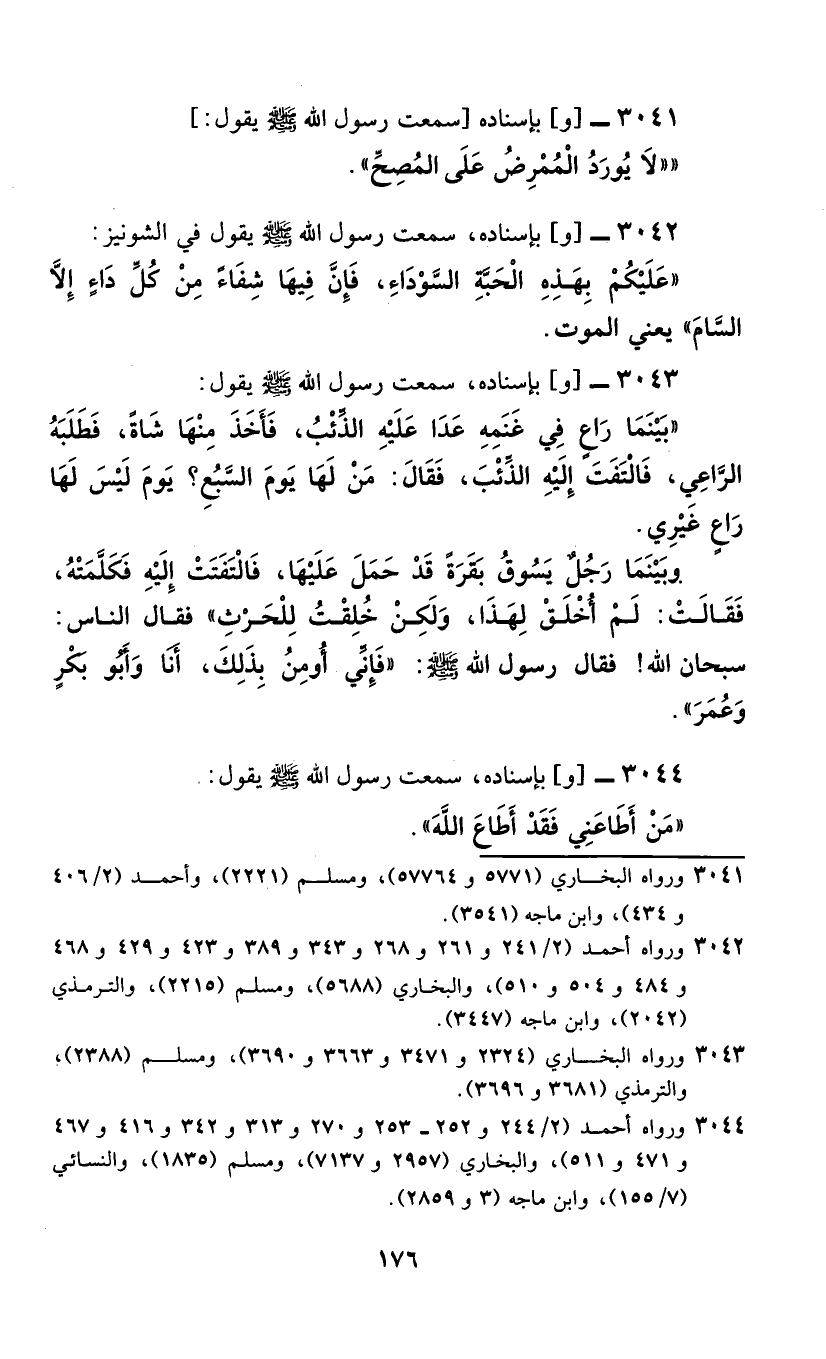 ٣٠٤١ ـ [و] بإسناده [سمعت رسول الله ﷺ يقول:]
««لَا يُورَدُ الْمُمْرِضُ عَلَى المُصِحِّ».
٣٠٤٢ ـ [و] بإسناده، سمعت رسول الله ﷺ يقول في الشونيز:
«عَلَيْكُمْ بِهَذِهِ الْحَبَّةِ السَّوْدَاءِ، فَإِنَّ فِيهَا شِفَاءً مِنْ كُلِّ دَاءٍ إِلاَّ
السَّامَ» يعني الموت.
٣٠٤٣ ـ [و] بإسناده، سمعت رسول الله ﷺ يقول:
«بَيْنَمَا رَاعٍ فِي غَنَمِهِ عَدَا عَلَيْهِ الذِّئْبُ، فَأَخَذَ مِنْهَا شَاةً، فَطَلَبَهُ
الرَّاعِي، فَالْتَفَتَ إِلَيْهِ الذِّئْبَ، فَقَالَ: مَنْ لَهَا يَومَ السَّبُعِ؟ يَومَ لَيْسَ لَهَا
رَاعٍ غَيْرِي.
وبَيْنَمَا رَجُلٌ يَسُوقُ بَقَرَةً قَدْ حَمَلَ عَلَيْهَا، فَالْتَفَتَتْ إِلَيْهِ فَكَلَّمَتْهُ،
فَقَالَتْ: لَمْ أُخْلَقْ لِهَذَا، وَلَكِنْ خُلِقْتُ لِلْحَرْثِ» فقال الناس:
سبحان الله! فقال رسول الله ﷺ: «فَإِنِّي أُومِنُ بِذَلِكَ، أَنَا وَأَبُو بَكْرٍ
وَعُمَرَ».
٣٠٤٤ ـ [و] بإسناده، سمعت رسول الله ﷺ يقول:
«مَنْ أَطَاعَنِي فَقَدْ أَطَاعَ اللَّهَ».
٣٠٤١ ورواه البخاري (٥٧٧١ و ٥٧٧٦٤)، ومسلم (٢٢٢١)، وأحمد (٤٠٦/٢
و ٤٣٤)، وابن ماجه (٣٥٤١).
٣٠٤٢ ورواه أحمد (٢٤١/٢ و ٢٦١ و ٢٦٨ و ٣٤٣ و ٣٨٩ و ٤٢٣ و ٤٢٩ و ٤٦٨
و ٤٨٤ و ٥٠٤ و ٥١٠)، والبخاري (٥٦٨٨)، ومسلم (٢٢١٥)، والترمذي
(٢٠٤٢)، وابن ماجه (٣٤٤٧).
٣٠٤٣ ورواه البخاري (٢٣٢٤ و ٣٤٧١ و ٣٦٦٣ و ٣٦٩٠)، ومسلم (٢٣٨٨)،
والترمذي (٣٦٨١ و ٣٦٩٦).
٣٠٤٤ ورواه أحمد (٢٤٤/٢ و ٢٥٢ ـ ٢٥٣ و ٢٧٠ و ٣١٣ و ٣٤٢ و ٤١٦ و ٤٦٧
و ٤٧١ و ٥١١)، والبخاري (٢٩٥٧ و ٧١٣٧)، ومسلم (١٨٣٥)، والنسائي
(١٥٥/٧)، وابن ماجه (٣ و ٢٨٥٩).
١٧٦